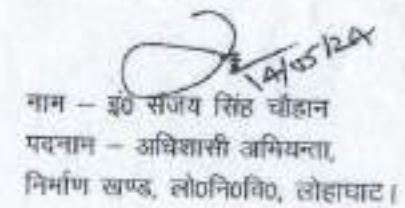 14/05/24
नाम – इं0 संजय सिंह चौहान
पदनाम – अधिशासी अभियन्ता,
निर्माण खण्ड, लो0नि0वि0, लोहाघाट।